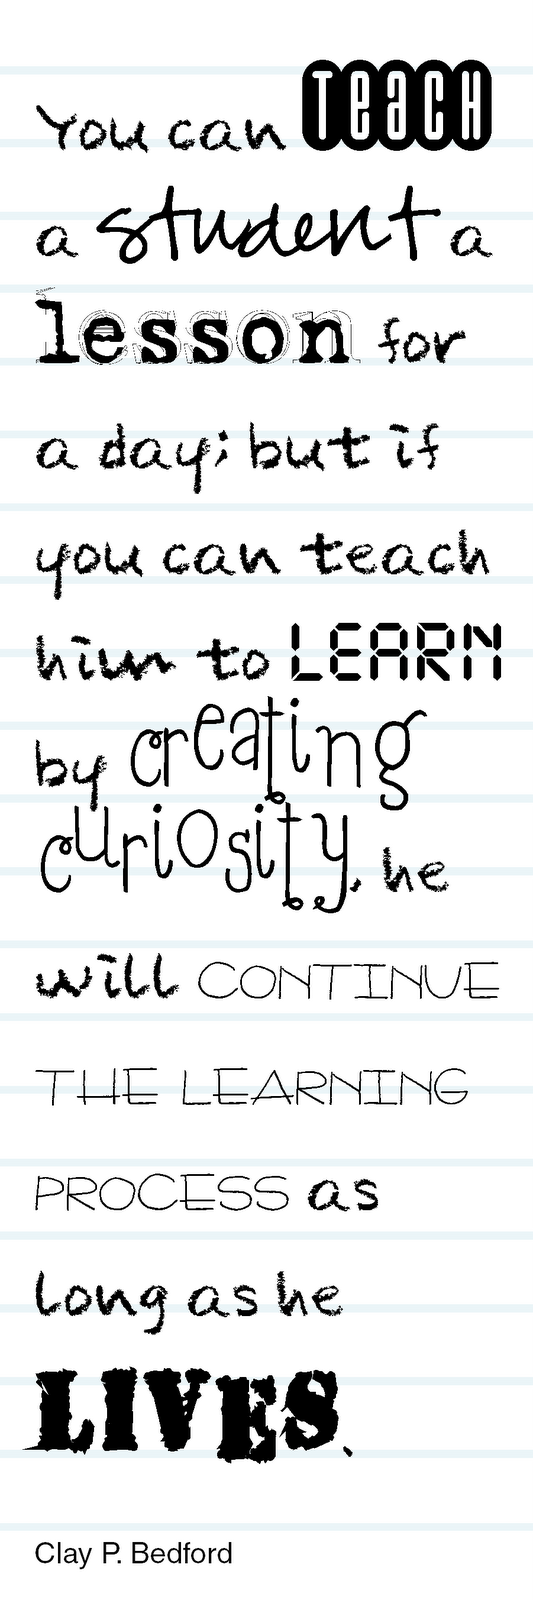 You can TeacH
a student a
lesson for
a day; but if
you can teach
him to LEARN
by creating
curiosity, he
will CONTINUE
THE LEARNING
PROCESS as
long as he
LIVES.
Clay P. Bedford